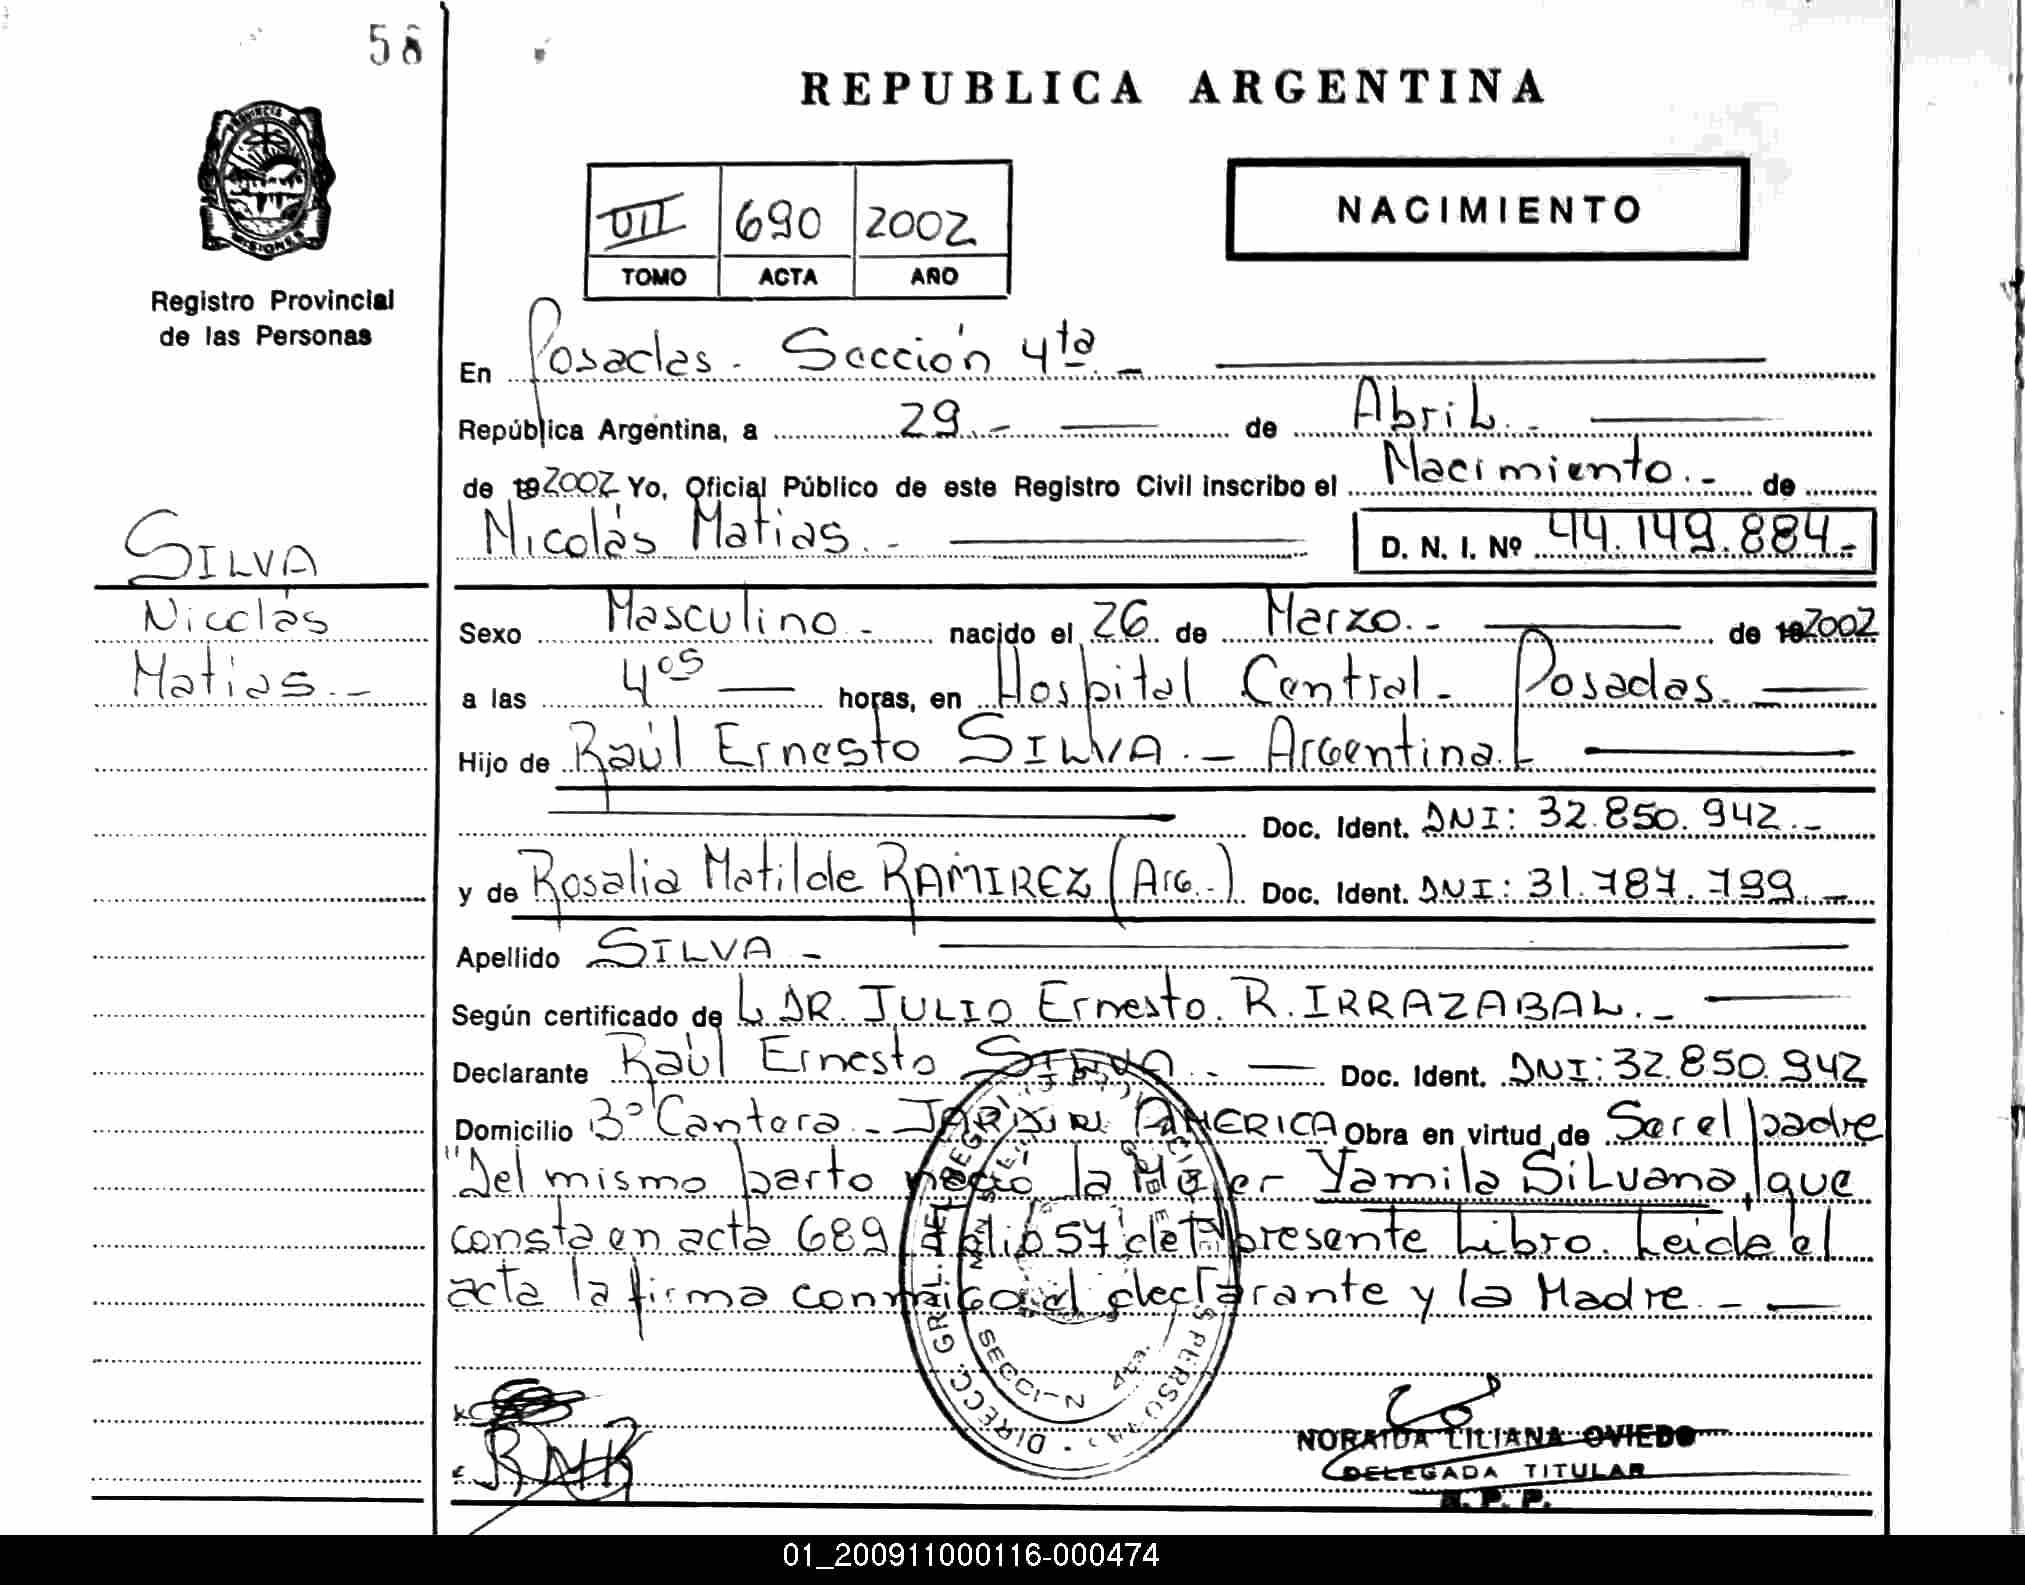 58
REPUBLICA ARGENTINA
PROVINCIA DE
MISIONES
Registro Provincial
de las Personas
VII 690 2002
TOMO ACTA AÑO
NACIMIENTO
En Posadas. Sección 4ta. -
República Argentina, a 29.- de Abril.-
de 192002 Yo, Oficial Público de este Registro Civil inscribo el Nacimiento.- de
Nicolás Matias.- D. N. I. Nº 44.149.884.-
SILVA
Nicolás
Matias.-
Sexo Masculino.- nacido el 26 de Marzo.- de 192002
a las 4os horas, en Hospital Central. Posadas.
Hijo de Raúl Ernesto SILVA.- Argentina.
Doc. Ident. DNI: 32.850.942.-
y de Rosalia Matilde RAMIREZ (Arg.-) Doc. Ident. DNI: 31.787.799.-
Apellido SILVA -
Según certificado de L DR. JULIO Ernesto. R. IRRAZABAL.-
Declarante Raúl Ernesto SILVA.- Doc. Ident. DNI: 32.850.942
Domicilio Bº Cantera - JARDIN AMERICA Obra en virtud de Ser el padre
"Del mismo parto nació la Mujer Yamila Silvana, que
consta en acta 689 folio 57 del presente Libro. Leida el
acta la firma conmigo el declarante y la Madre.-
DIRECC. GRAL. DEL REG
SECCION 4ta.
NORAIDA LILIANA OVIEDO
DELEGADA TITULAR
R. P. P.
01_200911000116-000474